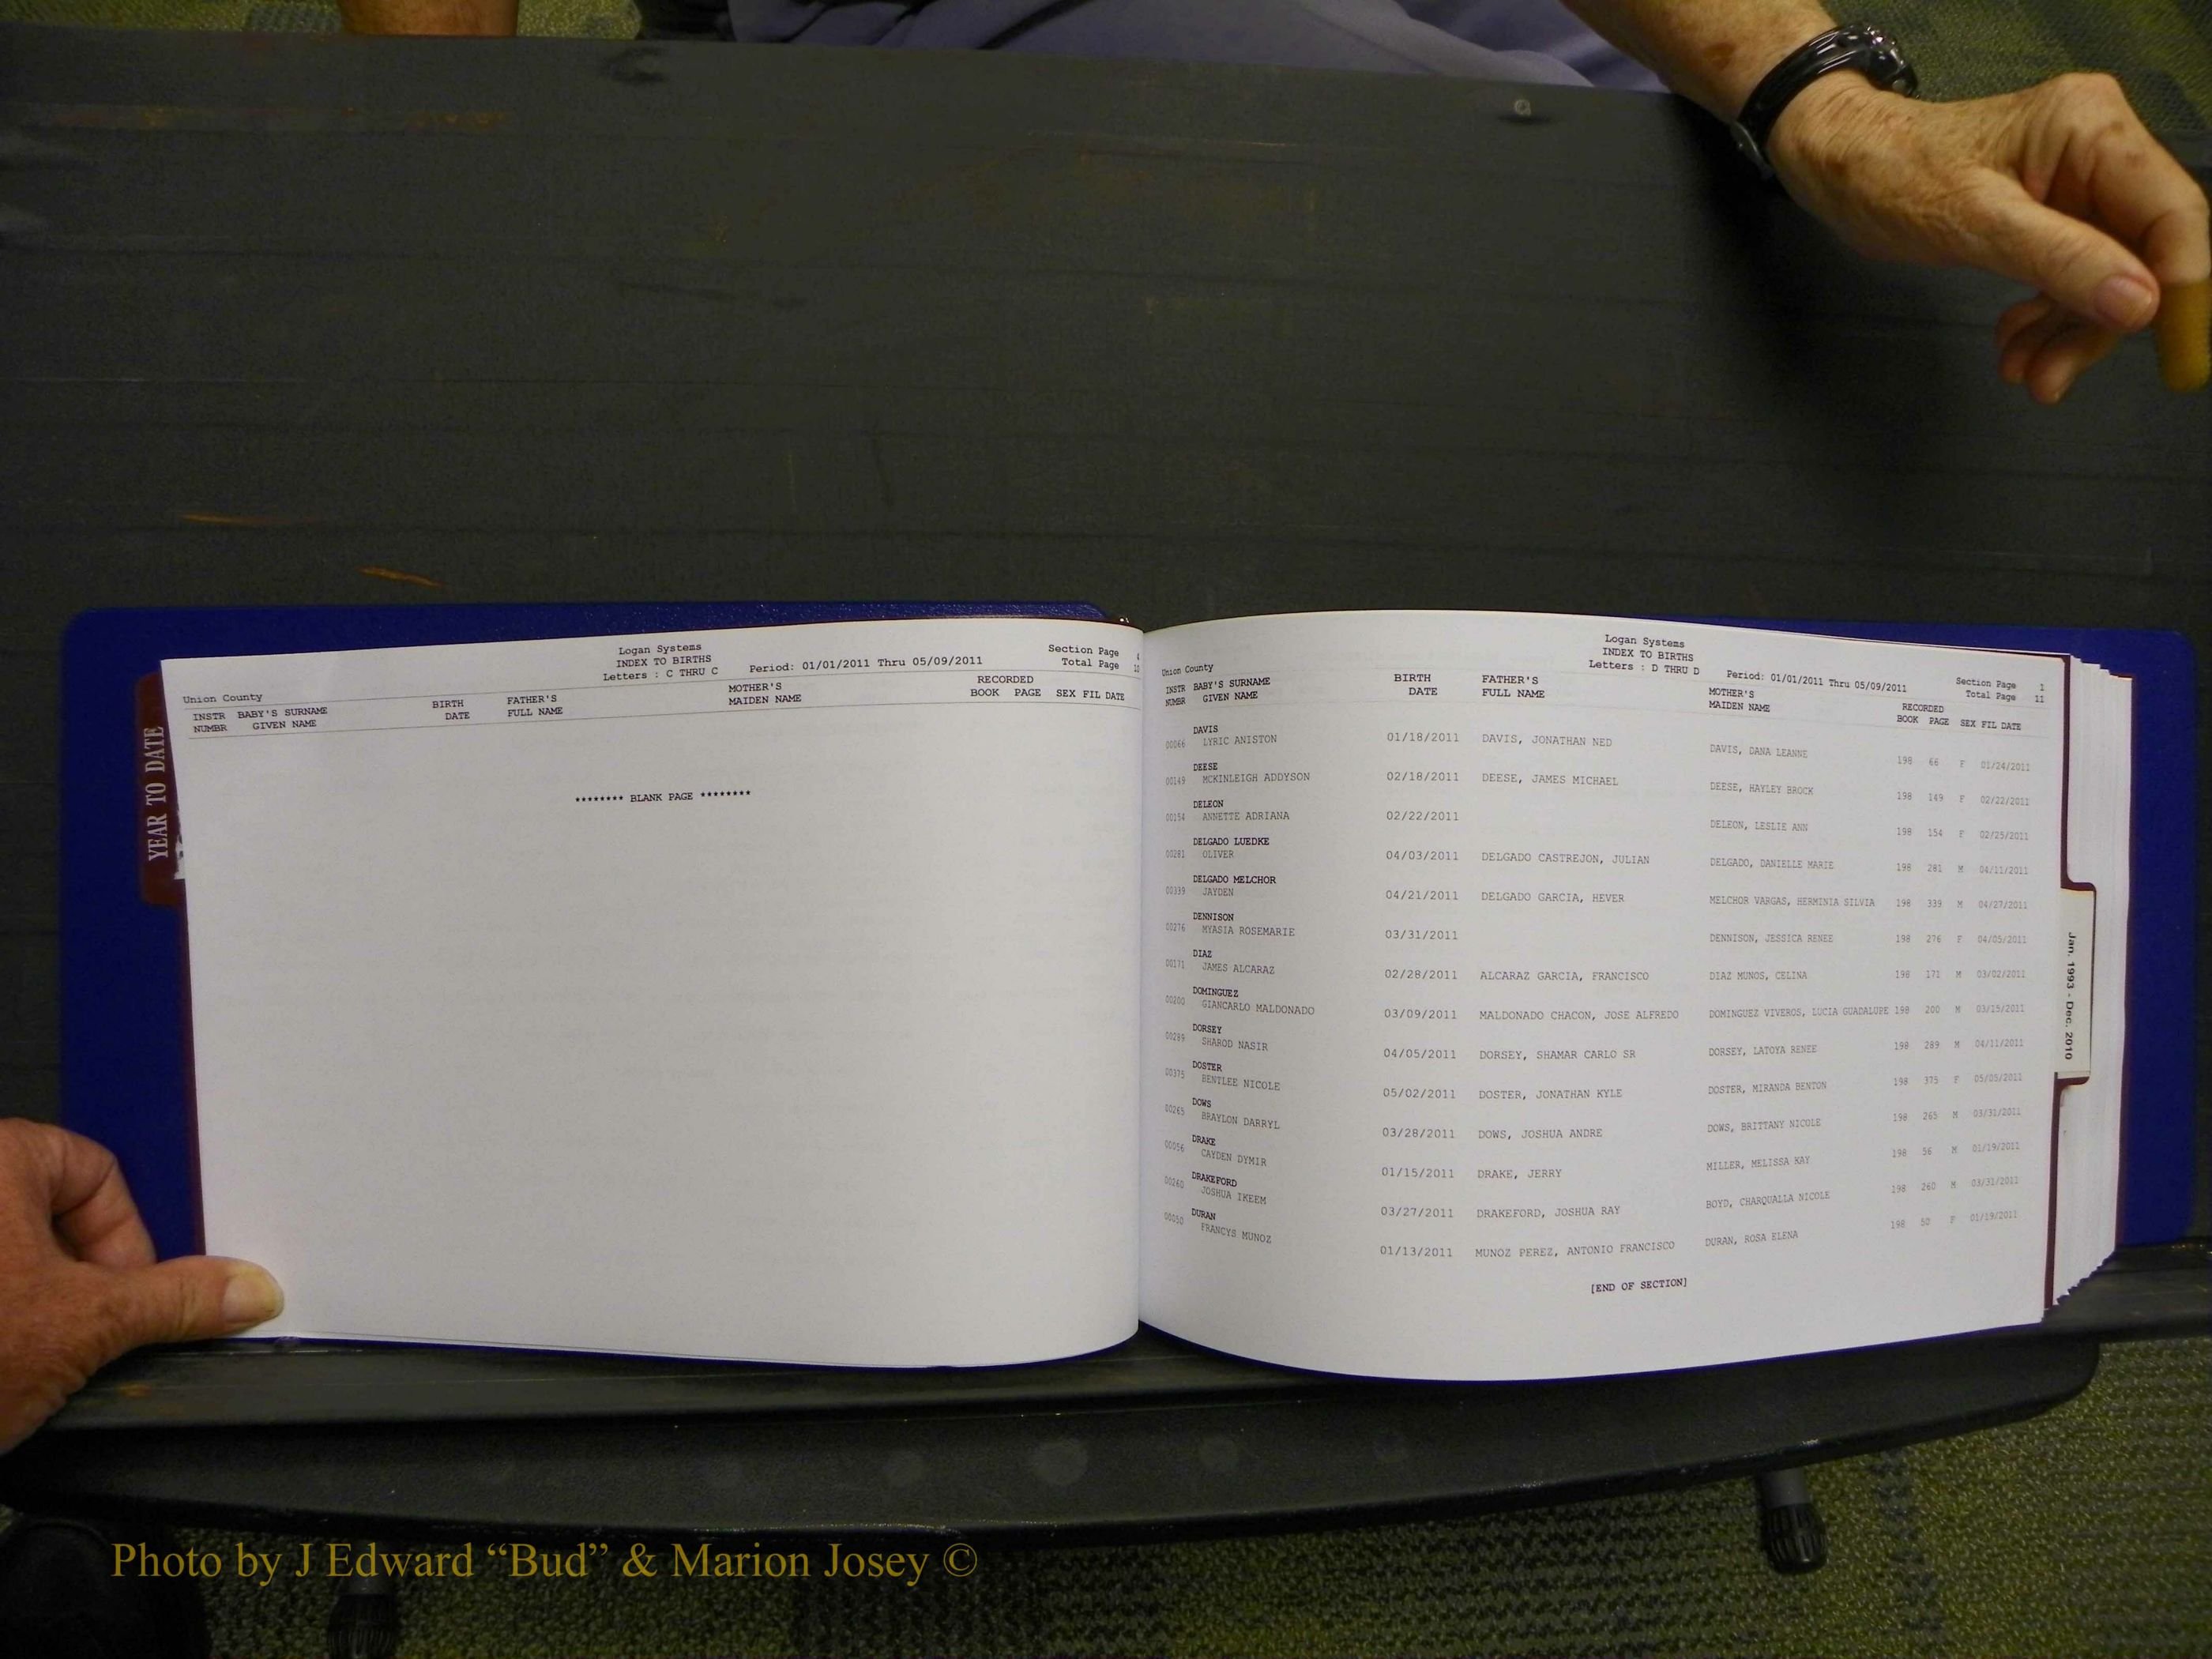 YEAR TO DATE
Logan Systems
INDEX TO BIRTHS
Letters : C THRU C Period: 01/01/2011 Thru 05/09/2011
Section Page
Total Page
Union County
INSTR BABY'S SURNAME BIRTH FATHER'S MOTHER'S RECORDED
NUMBR GIVEN NAME DATE FULL NAME MAIDEN NAME BOOK PAGE SEX FIL DATE
******** BLANK PAGE ********
Logan Systems
INDEX TO BIRTHS
Letters : D THRU D Period: 01/01/2011 Thru 05/09/2011
Section Page 1
Total Page 11
Union County
INSTR BABY'S SURNAME BIRTH FATHER'S MOTHER'S RECORDED
NUMBR GIVEN NAME DATE FULL NAME MAIDEN NAME BOOK PAGE SEX FIL DATE
DAVIS
00066 LYRIC ANISTON 01/18/2011 DAVIS, JONATHAN NED DAVIS, DANA LEANNE 198 66 F 01/24/2011
DEESE
00149 MCKINLEIGH ADDYSON 02/18/2011 DEESE, JAMES MICHAEL DEESE, HAYLEY BROCK 198 149 F 02/22/2011
DELEON
00154 ANNETTE ADRIANA 02/22/2011 DELEON, LESLIE ANN 198 154 F 02/25/2011
DELGADO LUEDKE
00281 OLIVER 04/03/2011 DELGADO CASTREJON, JULIAN DELGADO, DANIELLE MARIE 198 281 M 04/11/2011
DELGADO MELCHOR
00339 JAYDEN 04/21/2011 DELGADO GARCIA, HEVER MELCHOR VARGAS, HERMINIA SILVIA 198 339 M 04/27/2011
DENNISON
00276 MYASIA ROSEMARIE 03/31/2011 DENNISON, JESSICA RENEE 198 276 F 04/05/2011
DIAZ
00171 JAMES ALCARAZ 02/28/2011 ALCARAZ GARCIA, FRANCISCO DIAZ MUNOS, CELINA 198 171 M 03/02/2011
DOMINGUEZ
00200 GIANCARLO MALDONADO 03/09/2011 MALDONADO CHACON, JOSE ALFREDO DOMINGUEZ VIVEROS, LUCIA GUADALUPE 198 200 M 03/15/2011
DORSEY
00289 SHAROD NASIR 04/05/2011 DORSEY, SHAMAR CARLO SR DORSEY, LATOYA RENEE 198 289 M 04/11/2011
DOSTER
00375 BENTLEE NICOLE 05/02/2011 DOSTER, JONATHAN KYLE DOSTER, MIRANDA BENTON 198 375 F 05/05/2011
DOWS
00265 BRAYLON DARRYL 03/28/2011 DOWS, JOSHUA ANDRE DOWS, BRITTANY NICOLE 198 265 M 03/31/2011
DRAKE
00056 CAYDEN DYMIR 01/15/2011 DRAKE, JERRY MILLER, MELISSA KAY 198 56 M 01/19/2011
DRAKEFORD
00260 JOSHUA IKEEM 03/27/2011 DRAKEFORD, JOSHUA RAY BOYD, CHARQUALLA NICOLE 198 260 M 03/31/2011
DURAN
00050 FRANCYS MUNOZ 01/13/2011 MUNOZ PEREZ, ANTONIO FRANCISCO DURAN, ROSA ELENA 198 50 F 01/19/2011
[END OF SECTION]
Jan. 1993 - Dec. 2010
Photo by J Edward “Bud” & Marion Josey ©